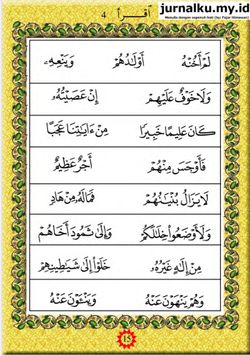 jurnalku.my.id
Menulis dengan sepenuh hati (by: Fajar Himawan)
٤ اقرأ
لَمْ أَخُنْهُ أَوْلَادُهُمْ وَيَنْعِهِ
وَلَاخَوْفٌ عَلَيْهِمْ إِنْ عَصَيْتُهُ
كَانَ عَلِيمًا خَبِيرًا مِنْ ءَايَاتِنَا عَجَبًا
فَأَوْجَسَ مِنْهُمْ أَجْرٌ عَظِيمٌ
لَا يَزَالُ بُنْيَانُهُمْ فَمَالَهُ مِنْ هَادٍ
وَلَأَوْضَعُوا خِلَالَكُمْ وَإِلَى ثَمُودَ أَخَاهُمْ
مِنْ إِلَهٍ غَيْرُهُ خَلَوْا إِلَى شَيَاطِينِهِمْ
وَهُمْ يَنْهَوْنَ عَنْهُ وَيَنْئَوْنَ عَنْهُ
15